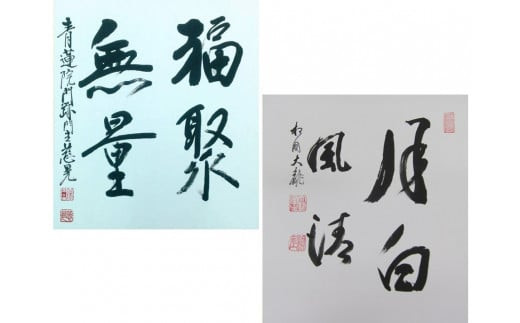 福聚
無量
青蓮院門跡門主慈晃
月白
風清
相国大龍